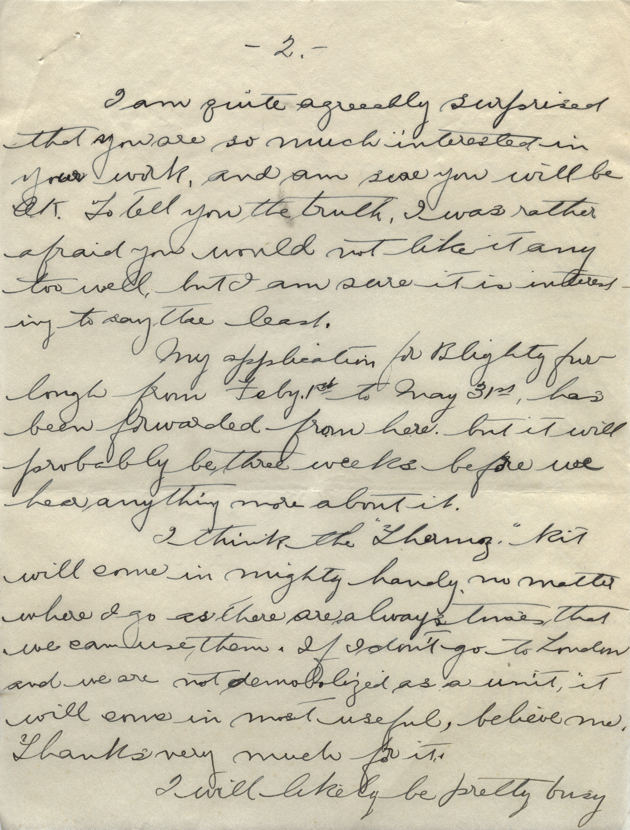 - 2. -
I am quite agreeably surprised
that you are so much interested in
your work, and am sure you will be
OK. To tell you the truth, I was rather
afraid you would not like it any
too well, but I am sure it is interest-
ing to say the least.
My application for Blighty fur-
lough from Feby. 1st to May 31st, has
been forwarded from here. but it will
probably be three weeks before we
hear anything more about it.
I think the "Thermoz." Kit
will come in mighty handy, no matter
where I go as there are always times that
we can use them. If I don't go to London
and we are not demobolized as a unit, it
will come in most useful, believe me.
Thanks very much for it.
I will likely be pretty busy